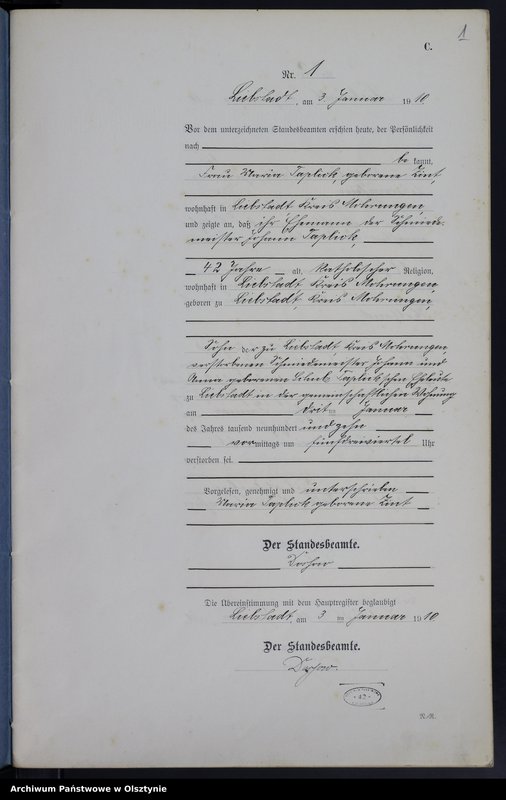 1
C.
Nr. 1
Liebstadt, am 3. Januar 1910
Vor dem unterzeichneten Standesbeamten erschien heute, der Persönlichkeit
nach
be kannt,
Frau Maria Taplick, geborene
wohnhaft in Liebstadt Kreis Mohrungen
und zeigte an, daß ihr Ehemann der Schmiede-
meister Johann Taplick,
42 Jahre alt, katholischer Religion,
wohnhaft in Liebstadt Kreis Mohrungen,
geboren zu Liebstadt, Kreis Mohrungen,
Sohn der zu Liebstadt, Kreis Mohrungen,
verstorbenen Schmiedemeister Johann und
Anna geborenen Taplick'schen Eheleute
zu Liebstadt in der gemeinschaftlichen Wohnung
am dritten Januar
des Jahres tausend neunhundert und zehn
vormittags um fünfdreiviertel Uhr
verstorben sei.
Vorgelesen, genehmigt und unterschrieben
Maria Taplick geborene
Der Standesbeamte.
Die Übereinstimmung mit dem Hauptregister beglaubigt
Liebstadt, am 3 ten Januar 1910
Der Standesbeamte.
N.-R.
Archiwum Państwowe w Olsztynie